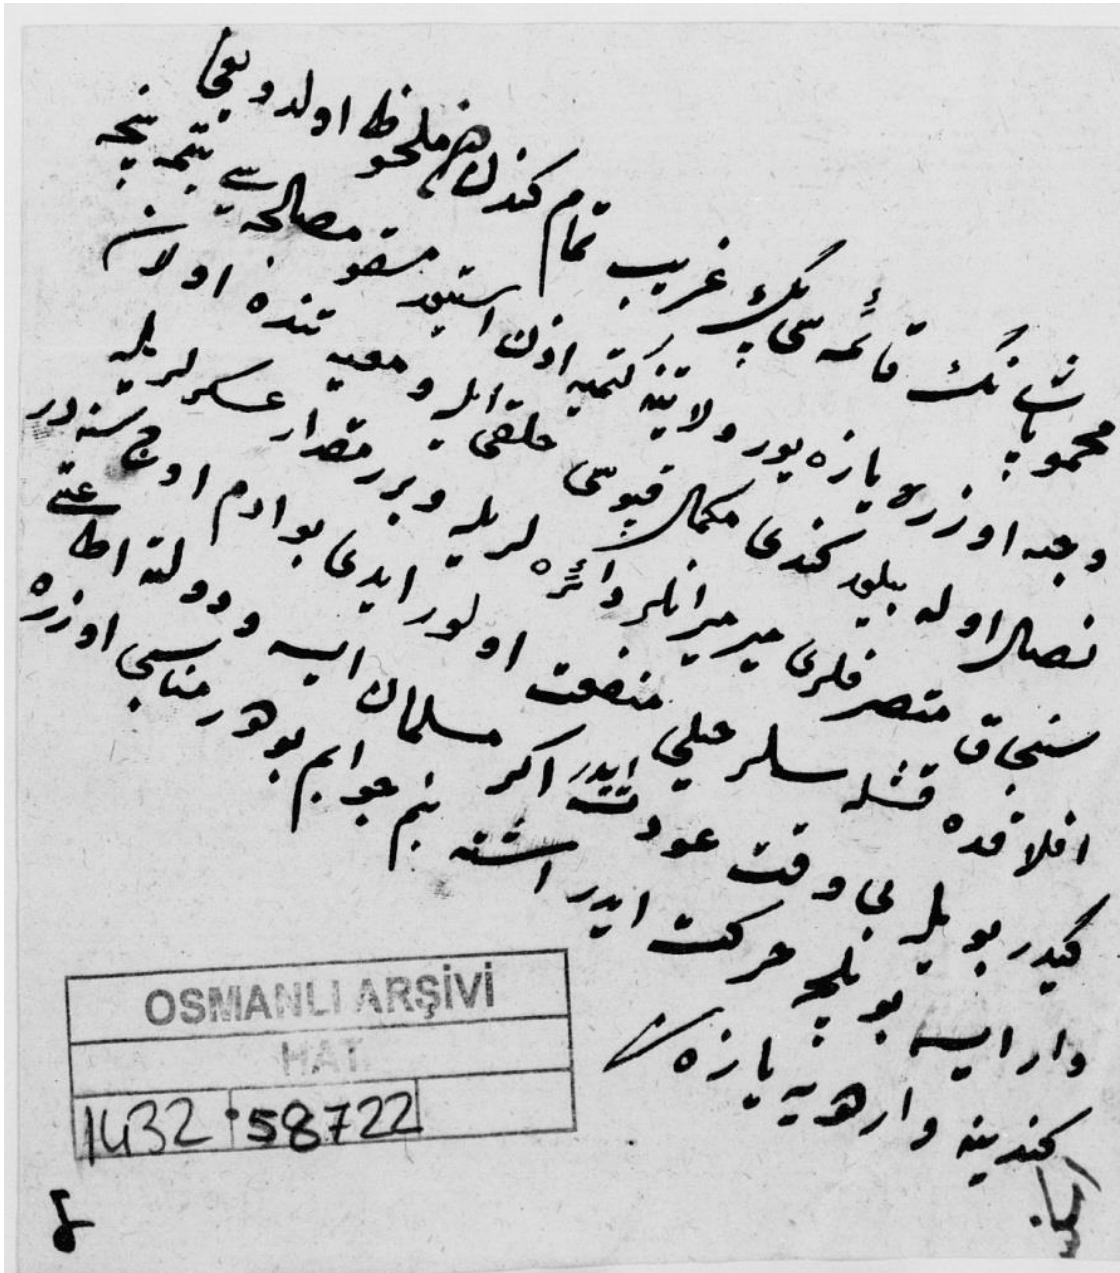 محمود پاشانك قائمه سی پك غریب تمام كندك هم ملحوظ اولدوغی
وجه اوزره یازه یور ولایتنه كتمیه اذن استیور مسقو مصالحه سی بتمینجه
نصل اوله بیلور كندی مكمل قپوسی خلقی ایله و معیتنده اولان
سنجاق متصرفلری میرمیرانلر دائره لریله و بر مقدار عسكرلریله
افلاقده قشله سلر خیلی منفعت اولور ایدی بو ادم اوج سنه در
كیدر بویله بی وقت عودت ایدر اكر مسلمان ایسه و دولته اطاعتی
وار ایسه بونلجه حركت ایدر اشته بنم جوابم بودر مناسبی اوزره
كندینه وارهویه یازه سن
OSMANLI ARŞİVİ
HAT
1432 58722